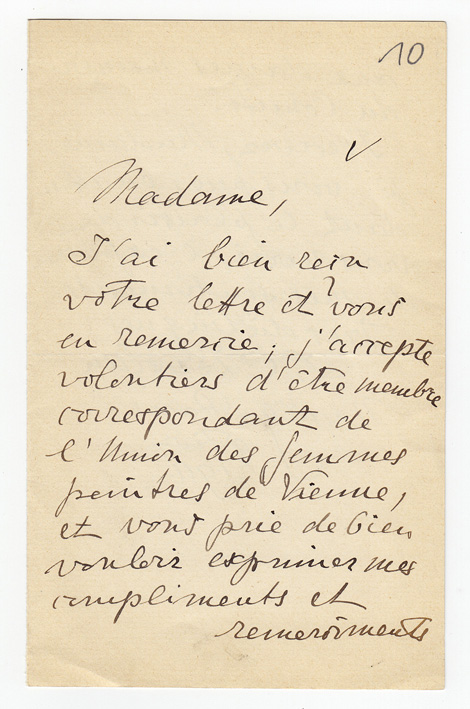 10
Madame,
J'ai bien reçu
votre lettre et vous
en remercie; j'accepte
volontiers d'être membre
correspondant de
l'Union des femmes
peintres de Vienne,
et vous prie de bien
vouloir exprimer mes
compliments et
remerciments